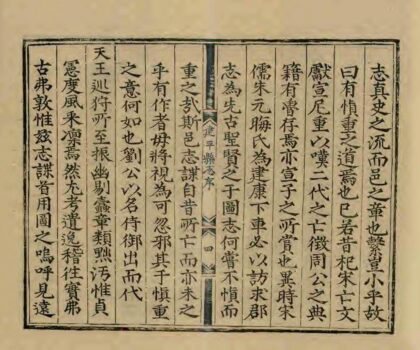 志真史之流而邑之章也繄豈小乎故
曰有慎重之道焉也已若昔杞宋亡文
獻宣尼重以嘆二代之亡徵周公之典
籍有魯存焉亦宣子之所賔也異時宋
儒朱元晦氏為建康下車必以訪求郡
志為先古聖賢之于圖志何嘗不慎而
建平縣志序 四
重之哉斯邑志諜自昔所亡而亦未之
乎有作者毋將視為可忽邪其于慎重
之意何如也劉公以名侍御出而代
天王巡狩所至振幽剔蠹章類黜污惟貞
憲度風采凜焉然尤考遺逸稽往實弗
古弗敦惟兹志諜首用圖之嗚呼見遠